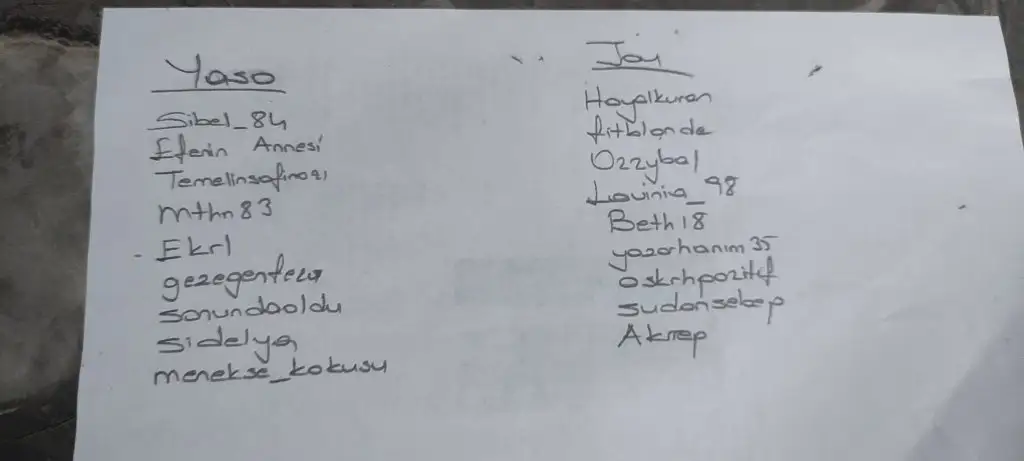 Yaso
Sibel_84
Efenin Annesi
mthn83
Ekrl
gezegenfeza
sonundaoldu
sidelya
menekse_kokusu
Joy
Hayalkuran
fitblonde
Ozzybal
Lavinia_98
Beth18
yazarhanım35
askrhpozitif
sudansebep
Akrep